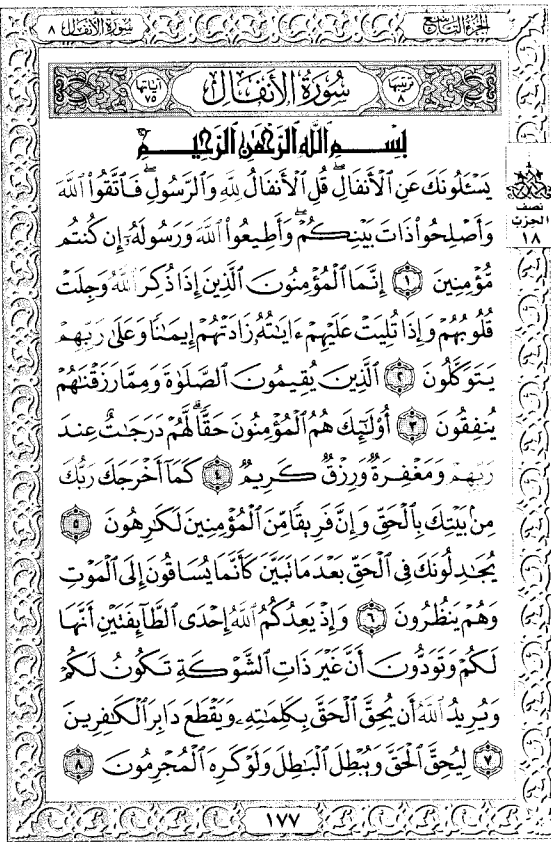 الجُزءُ التَّاسِعُ
سُورَةُ الأَنفَالِ ٨
ترتيبها ٨
سُورَةُ الأَنفَالِ
آياتها ٧٥
بِسْمِ ٱللَّهِ ٱلرَّحْمَٰنِ ٱلرَّحِيمِ
يَسْـَٔلُونَكَ عَنِ ٱلْأَنفَالِۖ قُلِ ٱلْأَنفَالُ لِلَّهِ وَٱلرَّسُولِۖ فَٱتَّقُوا۟ ٱللَّهَ
وَأَصْلِحُوا۟ ذَاتَ بَيْنِكُمْۖ وَأَطِيعُوا۟ ٱللَّهَ وَرَسُولَهُۥٓ إِن كُنتُم
مُّؤْمِنِينَ ١ إِنَّمَا ٱلْمُؤْمِنُونَ ٱلَّذِينَ إِذَا ذُكِرَ ٱللَّهُ وَجِلَتْ
قُلُوبُهُمْ وَإِذَا تُلِيَتْ عَلَيْهِمْ ءَايَٰتُهُۥ زَادَتْهُمْ إِيمَٰنًا وَعَلَىٰ رَبِّهِمْ
يَتَوَكَّلُونَ ٢ ٱلَّذِينَ يُقِيمُونَ ٱلصَّلَوٰةَ وَمِمَّا رَزَقْنَٰهُمْ
يُنفِقُونَ ٣ أُو۟لَٰٓئِكَ هُمُ ٱلْمُؤْمِنُونَ حَقًّاۚ لَّهُمْ دَرَجَٰتٌ عِندَ
رَبِّهِمْ وَمَغْفِرَةٌ وَرِزْقٌ كَرِيمٌ ٤ كَمَآ أَخْرَجَكَ رَبُّكَ
مِنۢ بَيْتِكَ بِٱلْحَقِّ وَإِنَّ فَرِيقًا مِّنَ ٱلْمُؤْمِنِينَ لَكَٰرِهُونَ ٥
يُجَٰدِلُونَكَ فِى ٱلْحَقِّ بَعْدَ مَا تَبَيَّنَ كَأَنَّمَا يُسَاقُونَ إِلَى ٱلْمَوْتِ
وَهُمْ يَنظُرُونَ ٦ وَإِذْ يَعِدُكُمُ ٱللَّهُ إِحْدَى ٱلطَّآئِفَتَيْنِ أَنَّهَا
لَكُمْ وَتَوَدُّونَ أَنَّ غَيْرَ ذَاتِ ٱلشَّوْكَةِ تَكُونُ لَكُمْ
وَيُرِيدُ ٱللَّهُ أَن يُحِقَّ ٱلْحَقَّ بِكَلِمَٰتِهِۦ وَيَقْطَعَ دَابِرَ ٱلْكَٰفِرِينَ
٧ لِيُحِقَّ ٱلْحَقَّ وَيُبْطِلَ ٱلْبَٰطِلَ وَلَوْ كَرِهَ ٱلْمُجْرِمُونَ ٨
نصف
الحزب
١٨
١٧٧